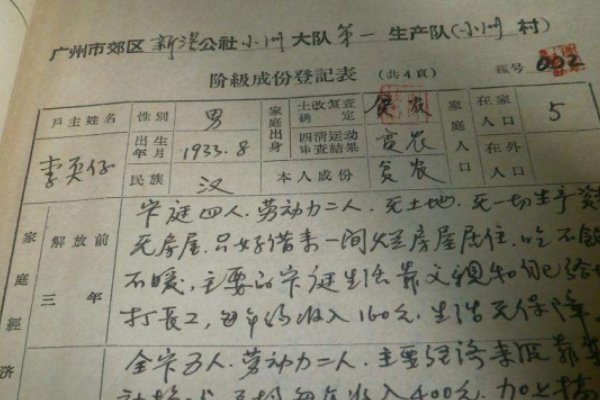 广州市郊区 新滘公社 小洲 大队 第一 生产队(小洲 村)
阶級成份登記表 (共4頁) 編号 002
戶主姓名 李 仔
性別 男
出生年月 1933.8
民族 汉
家庭出身
土改复查确定 贫农
四清运动审查結果 貧农
本人成份 贫农
家庭人口
在家人口 5
在外人口
家庭經济
解放前三年
家庭四人.劳动力二人.无土地.无一切生产资
无房屋.只好借来一间烂房屋居住.吃不饱
不暖,主要的家庭生活靠父親和自己给
打長工,每年 收入160元.生活无保障
全家五人.劳动力二人.主要经济来 靠
每年收入400元.加上搞